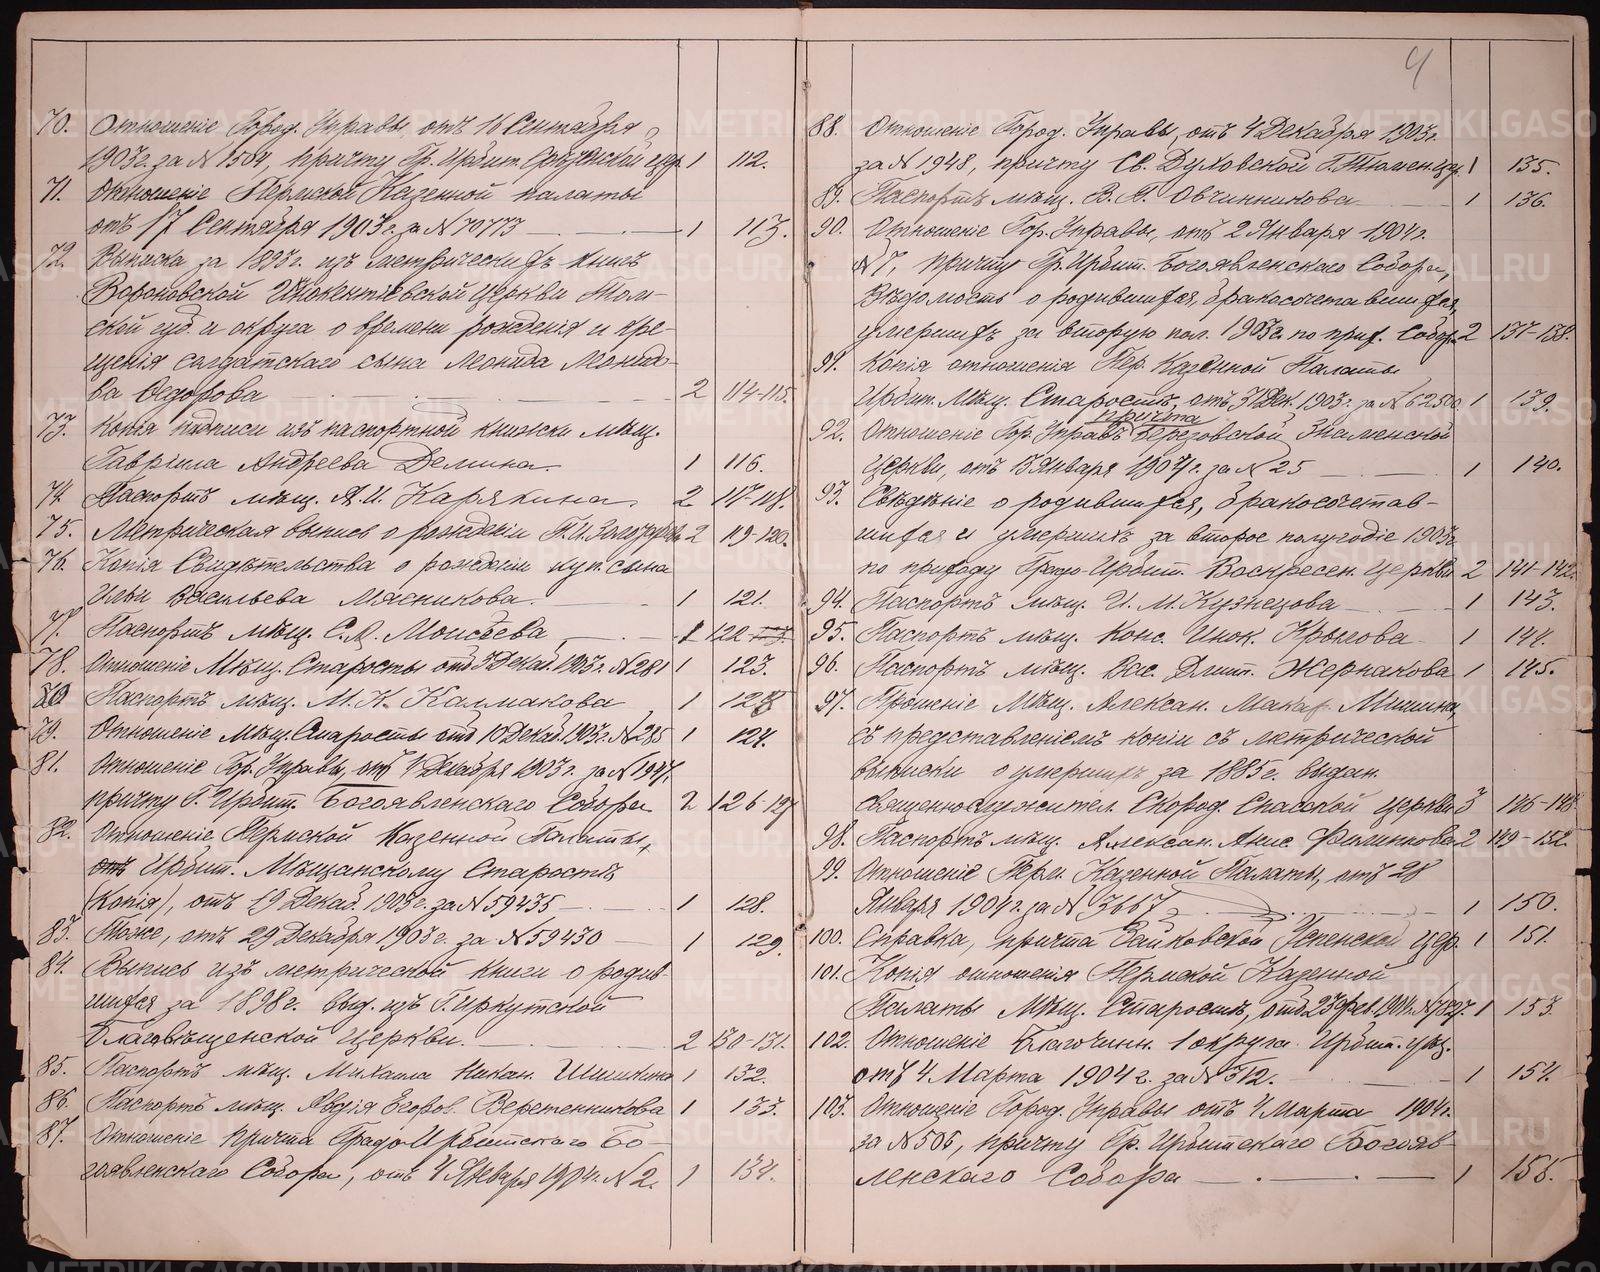 70. Отношеніе Город. Управы, отъ 16 Сентября
1903 г. за № 1504, причту Гр. Ирбит. Срѣтенской цер. 1 112.
71. Отношеніе Пермской Казенной палаты
отъ 17 Сентября 1903 г. за № 70773 1 113.
72. Выписка за 1893 г. изъ метрическихъ книгъ
Вороновской Инокентіевской церкви Том-
ской губ. и округа о времени рожденія и кре-
щенія солдатскаго сына Леонида Леонидо-
ва Федорова 2 114-115.
73. Копія надписи изъ паспортной книжки мѣщ.
Гавріила Андреева Демина. 1 116.
74. Паспортъ мѣщ. А. И. Карякина 2 117-118.
75. Метрическая выпись о рожденіи П. И. 2 119-120.
76. Копія Свидѣтельства о рожденіи куп. сына
Ильи Васильева Мясникова. 1 121.
77. Паспортъ мѣщ. С. А. Моисѣева 1 122
78. Отношеніе Мѣщ. Старосты отъ 5 Декаб. 1903 г. № 281 1 123.
80 Паспортъ мѣщ. М. К. Калмакова 1 125
79. Отношеніе Мѣщ. Старосты отъ 10 Декаб. 1903 г. № 285 1 124.
81. Отношеніе Гор. Управы, отъ 4 Декабря 1903 г. за № 1947,
причту Г. Ирбит. Богоявленскаго Собора 2 126-127
82. Отношеніе Пермской Казенной Палаты,
отъ Ирбит. Мѣщанскому Старостѣ
(копія), отъ 19 Декаб. 1903 г. за № 59435 1 128.
83. Тоже, отъ 29 Декабря 1903 г. за № 59430 1 129.
84. Выпись изъ метрической книги о родив-
шихся за 1898 г. выд. изъ Г. Иркутской
Благовѣщенской Церкви. 2 130-131.
85. Паспортъ мѣщ. Михаила Никан. Шишкина 1 132.
86. Паспортъ мѣщ. Авдія Егоров. Веретенникова 1 133.
87. Отношеніе причта Градо-Ирбитскаго Бо-
гоявленскаго Собора, отъ 4 Января 1904 г. № 2. 1 134.
4
88. Отношеніе Город. Управы, отъ 4 Декабря 1903 г.
за № 1948, причту Св. Духовской Г. Тюмен. цер. 1 135.
89. Паспортъ мѣщ. В. Я. Овчинникова 1 136.
90. Отношеніе Гор. Управы, отъ 2 Января 1904 г.
№ 7, причту Гр. Ирбит. Богоявленскаго Собора,
Вѣдомость о родившихся, бракосочетавшихся,
умершихъ за вторую пол. 1903 г. по прих. Собора 2 137-138.
91. Копія отношенія Пер. Казенной Палаты
Ирбит. Мѣщ. Старостѣ, отъ 31 Дек. 1903 г. за № 62500 1 139.
причта
92. Отношеніе Гор. Управѣ Березовской Знаменской
Церкви, отъ 13 Января 1904 г. за № 25 1 140.
93. Свѣдѣніе о родившихся, бракосочетав-
шихся и умершихъ за второе полугодіе 1903 г.
по приходу Градо-Ирбит. Воскресен. церкви 2 141-142.
94. Паспортъ мѣщ. И. М. Кузнецова 1 143.
95. Паспортъ мѣщ. Конс. Инок. Крылова 1 144.
96. Паспортъ мѣщ. Вас. Дмит. Жернакова 1 145.
97. Прошеніе Мѣщ. Алексан. Макар. Мишина,
съ представленіемъ копіи съ метрической
выписки о умершихъ за 1885 г. выдан.
священнослужител. Сковород. Спасской церкви 3 146-148.
98. Паспортъ мѣщ. Алексан. Анис. Филинкова 2 149-152.
99. Отношеніе Перм. Казенной Палаты, отъ 28
Января 1904 г. за № 3667 1 150.
100. Справка, причта Зайковской Успенской цер. 1 151.
101. Копія отношенія Пермской Казенной
Палаты Мѣщ. Старостѣ, отъ 23 Фев. 1904 г. № 7827. 1 153.
102. Отношеніе Благочинн. 1 округа Ирбит. уѣзд.
отъ 4 Марта 1904 г. за № 312. 1 154.
103. Отношеніе Город. Управы отъ 4 Марта 1904 г.
за № 506, причту Гр. Ирбитскаго Богояв-
ленскаго Собора 1 155.